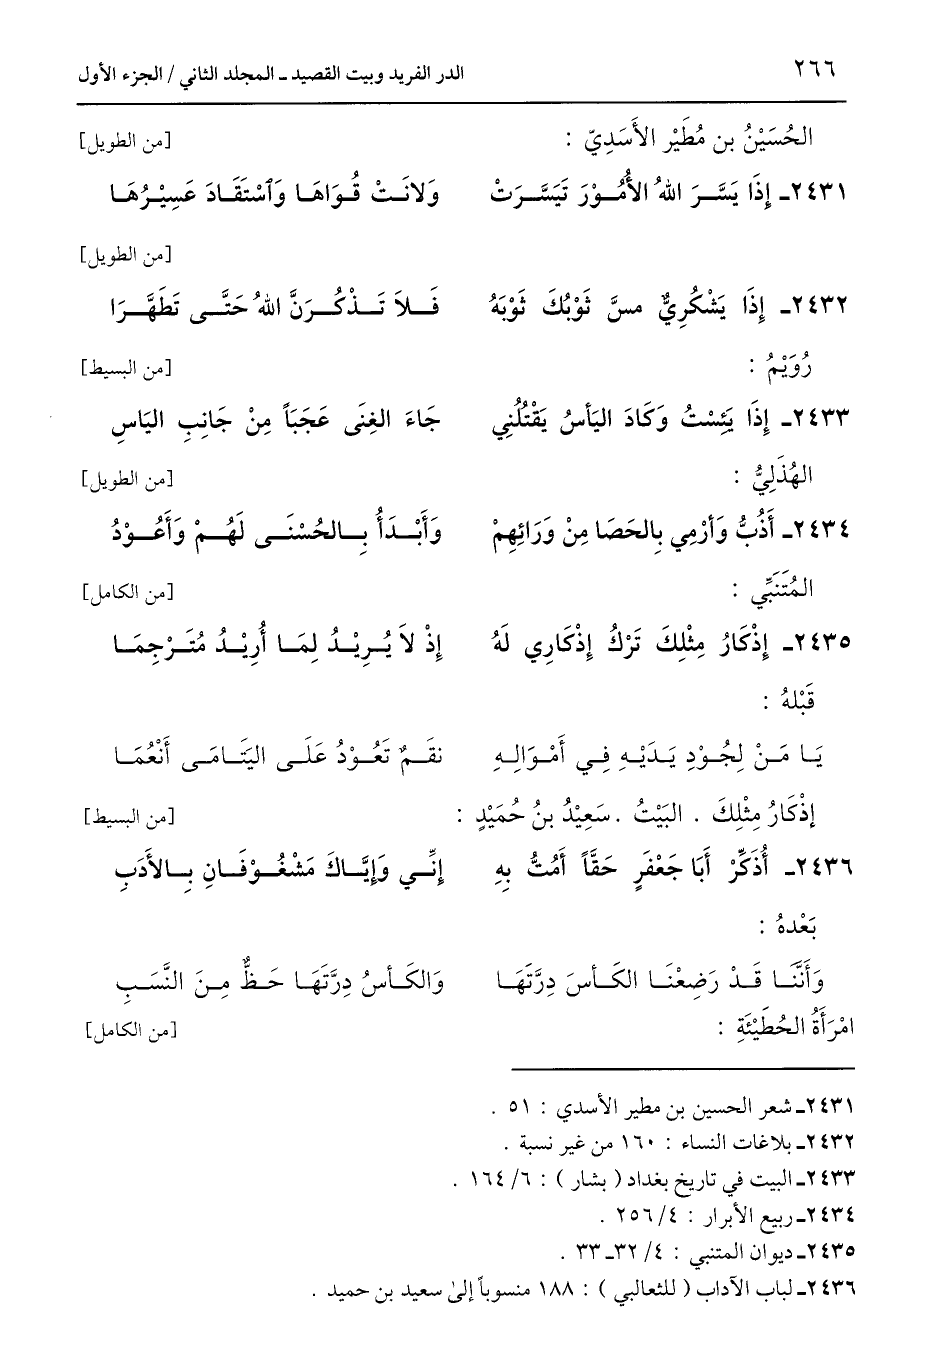 ٢٦٦ الدر الفريد وبيت القصيد ـ المجلد الثاني / الجزء الأول
الحُسَيْنُ بن مُطَيْر الأَسَدِيّ : [من الطويل]
٢٤٣١ـ إِذَا يَسَّرَ اللهُ الأُمُوْرَ تَيَسَّرَتْ وَلانَتْ قُوَاهَا وَٱسْتَقَادَ عَسِيْرُهَا
[من الطويل]
٢٤٣٢ـ إِذَا يَشْكُرِيٌّ مسَّ ثَوْبُكَ ثَوْبَهُ فَلاَ تَذْكُرَنَّ اللهُ حَتَّى تَطَهَّرَا
رُوَيْمُ : [من البسيط]
٢٤٣٣ـ إِذَا يَئِسْتُ وَكَادَ اليَأسُ يَقْتُلُنِي جَاءَ الغِنَى عَجَبَاً مِنْ جَانِبِ اليَاسِ
الهُذَلِيُّ : [من الطويل]
٢٤٣٤ـ أَذُبُّ وَأَرْمِي بِالحَصَا مِنْ وَرَائِهِمْ وَأَبْدَأُ بِالحُسْنَى لَهُمْ وَأَعُوْدُ
المُتَنَبِّي : [من الكامل]
٢٤٣٥ـ إِذْكَارُ مِثْلِكَ تَرْكُ إِذْكَارِي لَهُ إِذْ لاَ يُرِيْدُ لِمَا أُرِيْدُ مُتَرْجِمَا
قَبْلهُ :
يَا مَنْ لِجُوْدِ يَدَيْهِ فِي أَمْوَالِهِ نقَمٌ تَعُوْدُ عَلَى اليَتَامَى أَنْعُمَا
إِذْكَارُ مِثْلِكَ . البَيْتُ . سَعِيْدُ بنُ حُمَيْدٍ : [من البسيط]
٢٤٣٦ـ أُذَكِّرْ أَبَا جَعْفَرٍ حَقَّاً أَمُتُّ بِهِ إِنِّي وَإِيَّاكَ مَشْغُوْفَانِ بِالأَدَبِ
بَعْدهُ :
وَأَنَّنَا قَدْ رَضِعْنَا الكَأسَ دِرَّتَهَا وَالكَأسُ دِرَّتهَا حَظٌّ مِنَ النَّسَبِ
امْرَأَةُ الحُطَيْئَةِ : [من الكامل]
٢٤٣١ـ شعر الحسين بن مطير الأسدي : ٥١ .
٢٤٣٢ـ بلاغات النساء : ١٦٠ من غير نسبة .
٢٤٣٣ـ البيت في تاريخ بغداد ( بشار ) : ٦/ ١٦٤ .
٢٤٣٤ـ ربيع الأبرار : ٤/ ٢٥٦ .
٢٤٣٥ـ ديوان المتنبي : ٤/ ٣٢ـ ٣٣ .
٢٤٣٦ـ لباب الآداب ( للثعالبي ) : ١٨٨ منسوباً إلىٰ سعيد بن حميد .